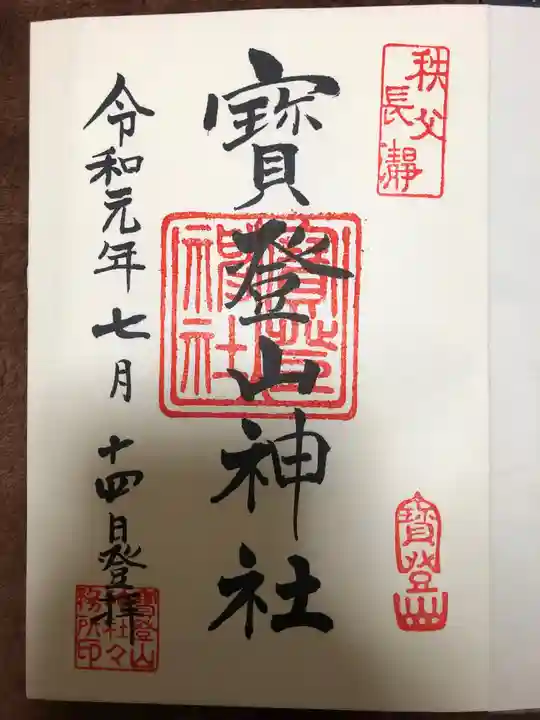 秩父
長瀞
寳登山
寳登山神社
寳登山
神社
令和元年七月十四日登拝
寳登山
社々
務所印